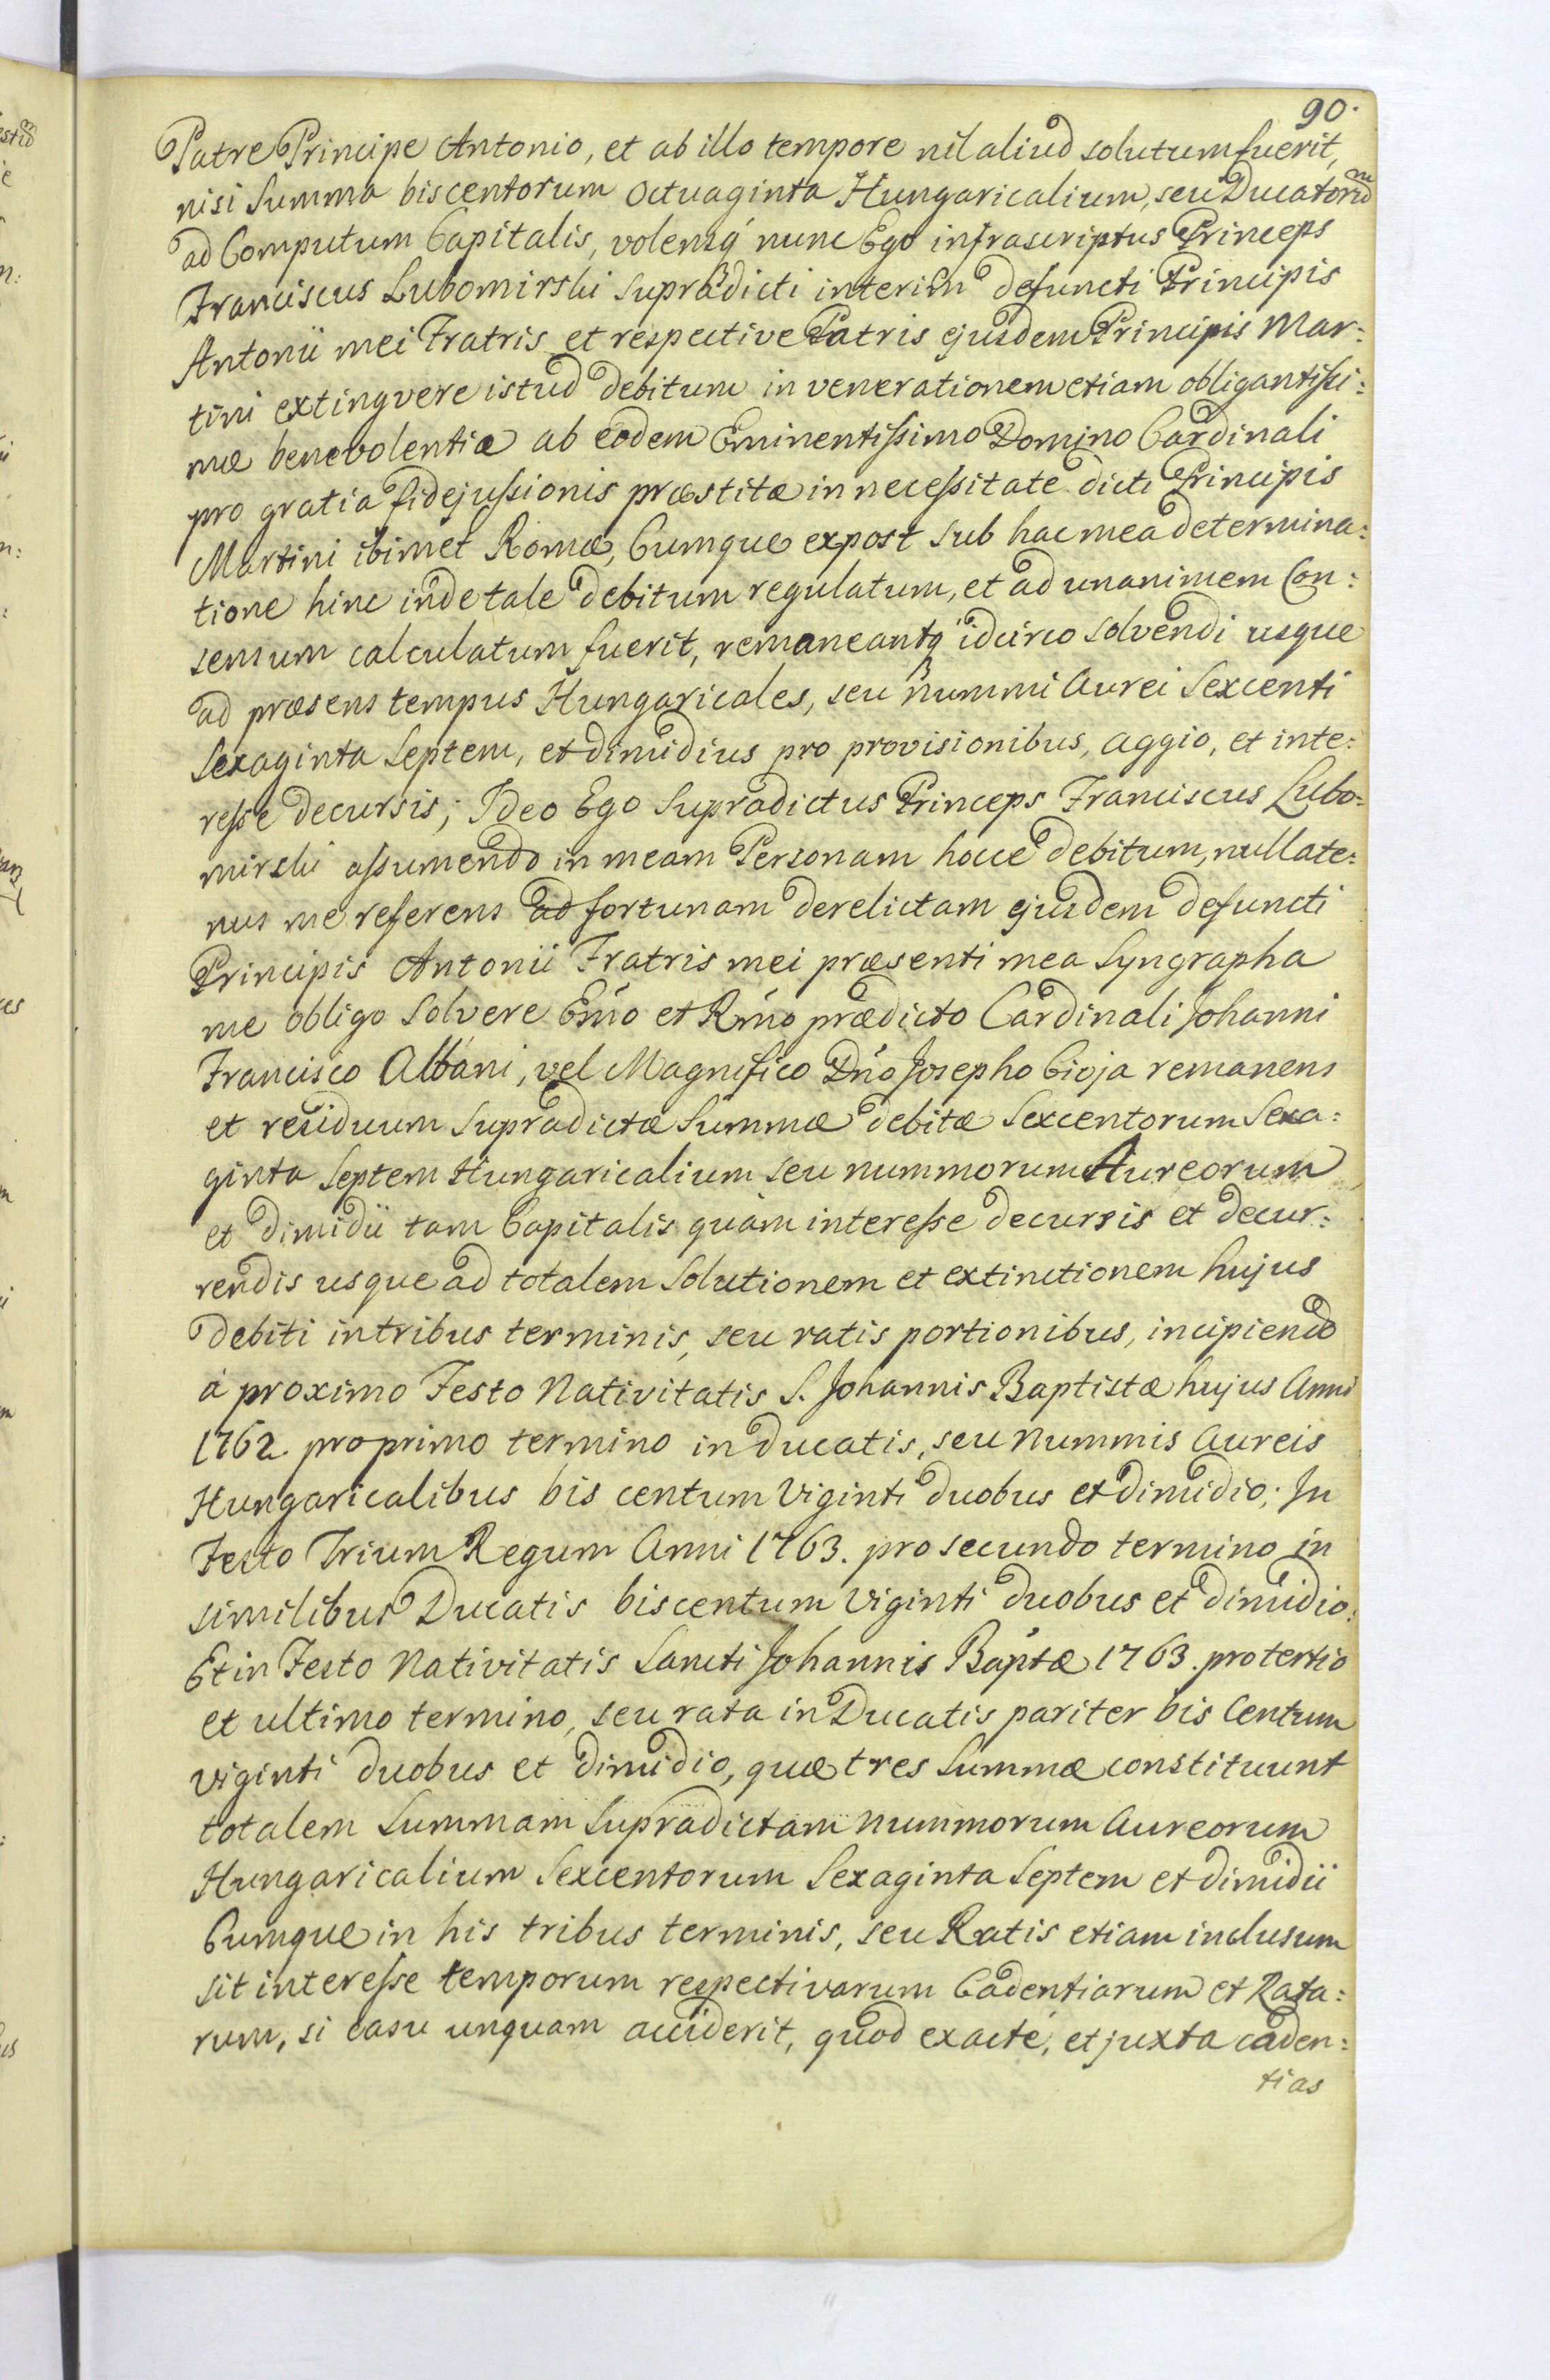 90.
Patre Principe Antonio, et ab illo tempore nil aliud solutum fuerit,
nisi Summa biscentorum octuaginta Hungaricalium, seu Ducatorum
ad Computum Capitalis, volensq́ nunc Ego infrascriptus Princeps
Franciscus Lubomirski Supradicti interim defuncti Principis
Antonii mei Fratris et respective Patris ejusdem Principis Mar:
tini extingvere istud debitum in venerationem etiam obligantissi:
mæ benevolentiæ ab eodem Eminentissimo Domino Cardinali
pro gratia fidejussionis præstitæ in necessitate dicti Principis
Martini ibimet Romæ, Cumque expost sub hac mea determina:
tione hinc inde tale debitum regulatum, et ad unanimem Con:
sensum calculatum fuerit, remaneantq́ idcirco solvendi usque
ad præsens tempus Hungaricales, seu nummi Aurei Sexcenti
Sexaginta Septem, et dimidius pro provisionibus, aggio, et inte:
resse decursis; Ideo Ego Supradictus Princeps Franciscus Lubo:
mirski assumendo in meam Personam hocce debitum, nullate:
nus me referens ad fortunam derelictam ejusdem defuncti
Principis Antonii Fratris mei præsenti mea Syngrapha
me obligo Solvere Emo et Rmo prædicto Cardinali Johanni
Francisco Albani, vel Magnifico Dno Josepho Cioja remanens
et residuum Supradictæ Summæ debitæ Sexcentorum Sexa:
ginta Septem Hungaricalium seu nummorum Aureorum
et dimidii tam Capitalis quàm interesse decursis et decur:
rendis usque ad totalem Solutionem et extinctionem hujus
debiti in tribus terminis, seu ratis portionibus, incipiendo
à proximo Festo Nativitatis S. Johannis Baptistæ hujus Anni
1762. pro primo termino in Ducatis, seu Nummis Aureis
Hungaricalibus bis centum Viginti duobus et dimidio; In
Festo Trium Regum Anni 1763. pro secundo termino in
similibus Ducatis biscentum Viginti duobus et dimidio:
Et in Festo Nativitatis Sancti Johannis Baptæ 1763. pro tertio
et ultimo termino, seu rata in Ducatis pariter bis Centum
viginti duobus et dimidio, quæ tres Summæ constituunt
totalem Summam Supradictam Nummorum Aureorum
Hungaricalium Sexcentorum Sexaginta Septem et dimidii
Cumque in his tribus terminis, seu Ratis etiam inclusum
sit interesse temporum respectivarum Cadentiarum et Rata:
rum, si casu unquam acciderit, quod exacte, et juxta caden:
tias